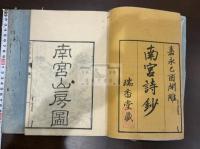 嘉永己酉開雕
南宮詩鈔
瑞香堂藏
南宮山房圖